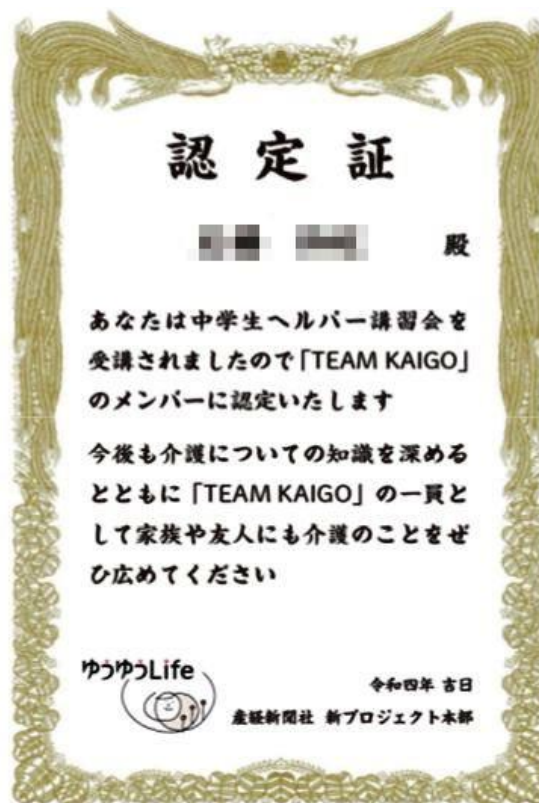 認定証
殿
あなたは中学生ヘルパー講習会を
受講されましたので「TEAM KAIGO」
のメンバーに認定いたします
今後も介護についての知識を深める
とともに「TEAM KAIGO」の一員と
して家族や友人にも介護のことをぜ
ひ広めてください
ゆうゆうLife
令和四年 吉日
産経新聞社 新プロジェクト本部